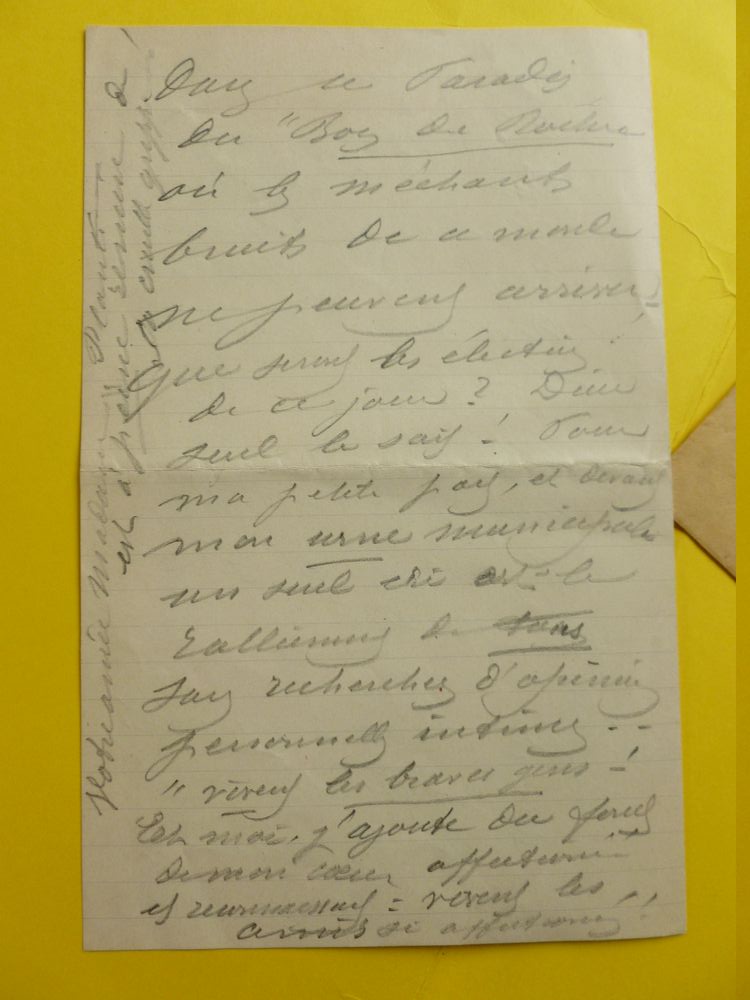 Dans ce Paradis
du "Bois de Roche
où les méchants
bruits de ce monde
ne peuvent arriver!
Que seront les élections
de ce jour? Dieu
seul le sait! Pour
ma petite part, et devant
mon urne municipale
un seul cri est le
ralliement de tous
sans recherches d'opinions
personnelles intimes --
"vivent les braves gens!
Et moi, j'ajoute du fond
de mon cœur affectionné
et reconnaissant = vivent les
amis si affectionnés!!
Votre amie Madame
est à peine remise de
cruelle grippe!